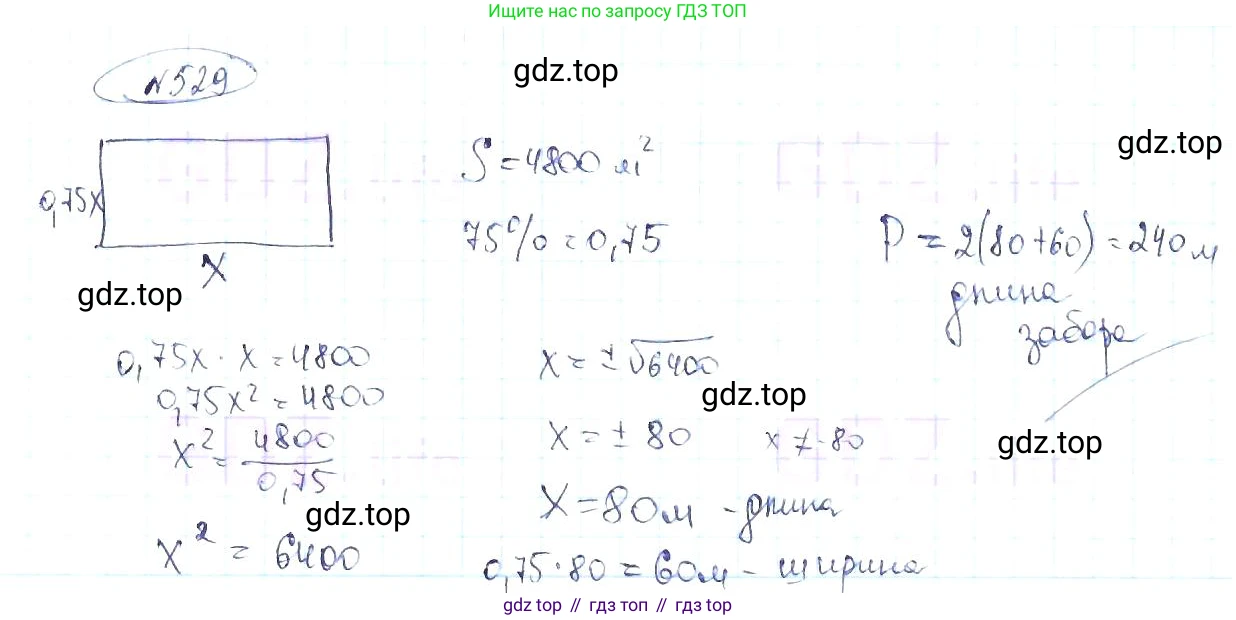 Ищите нас по запросу ГДЗ ТОП
№529
gdz.top
gdz.top
0,75x
x
gdz.top
S = 4800 м²
75% = 0,75
P = 2(80+60) = 240 м
длина
забора
0,75x · x = 4800
0,75x² = 4800
x² = 4800/0,75
gdz.top
x² = 6400
x = ±√6400
gdz.top
x = ± 80 x ≠ -80
gdz.top
x = 80м - длина
0,75 · 80 = 60м - ширина
gdz top // гдз топ // гдз top